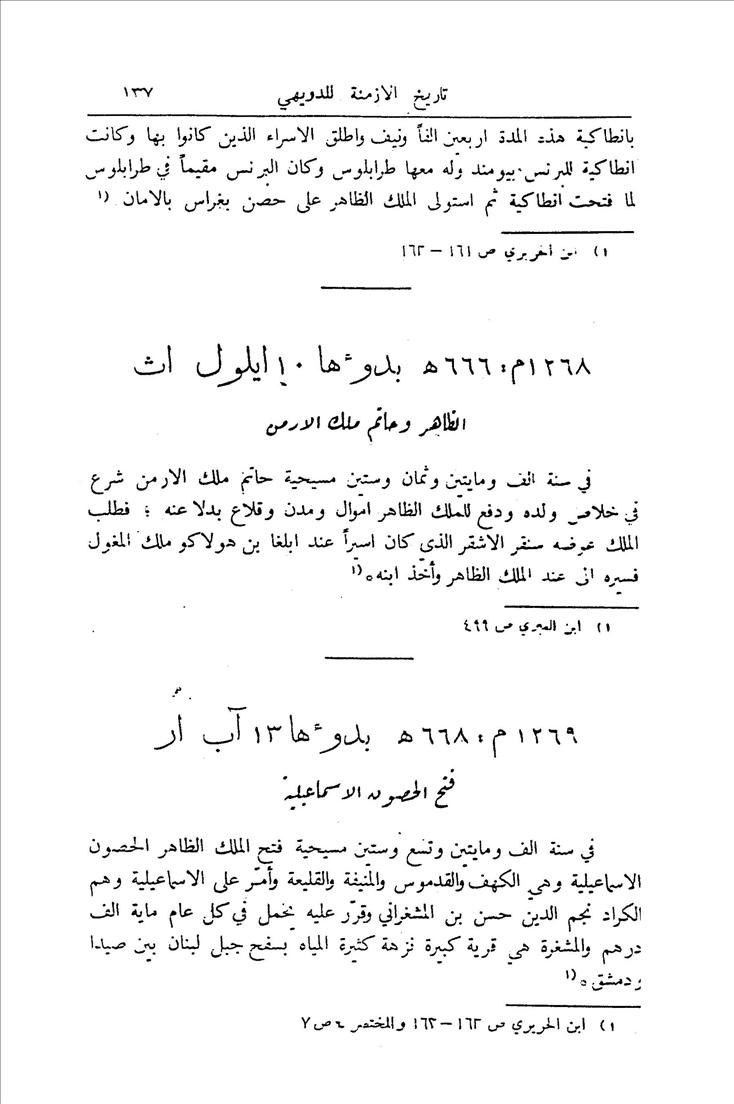 تاريخ الازمنة للدويهي ١٣٧
بانطاكية هذه المدة اربعين الفاً ونيف واطلق الاسراء الذين كانوا بها وكانت
انطاكية للبرنس بيومند وله معها طرابلوس وكان البرنس مقيماً في طرابلوس
لما فتحت انطاكية ثم استولى الملك الظاهر على حصن بغراس بالامان ١)
١) ابن الحريري ص ١٦١ – ١٦٢
١٢٦٨م: ٦٦٦ه بدوءها ١٠ ايلول اث
الظاهر وحاتم ملك الارمن
في سنة الف ومايتين وثمان وستين مسيحية حاتم ملك الارمن شرع
في خلاص ولده ودفع للملك الظاهر اموال ومدن وقلاع بدلا عنه ؛ فطلب
الملك عوضه سنقر الاشقر الذي كان اسيراً عند ابلغا بن هولاكو ملك المغول
فسيره الى عند الملك الظاهر وأخذ ابنه. ١)
١) ابن العبري ص ٤٩٩
١٢٦٩م: ٦٦٨ه بدوءها ١٣ آب ار
فتح الحصون الاسماعيلية
في سنة الف ومايتين وتسع وستين مسيحية فتح الملك الظاهر الحصون
الاسماعيلية وهي الكهف والقدموس والمنيفة والقليعة وأمّر على الاسماعيلية وهم
الكراد نجم الدين حسن بن المشغراني وقرّر عليه يحمل في كل عام ماية الف
درهم والمشغرة هي قرية كبيرة نزهة كثيرة المياه بسفح جبل لبنان بين صيدا
ودمشق. ١)
١) ابن الحريري ص ١٦٢–١٦٣ والمختصر ٤ ص ٧